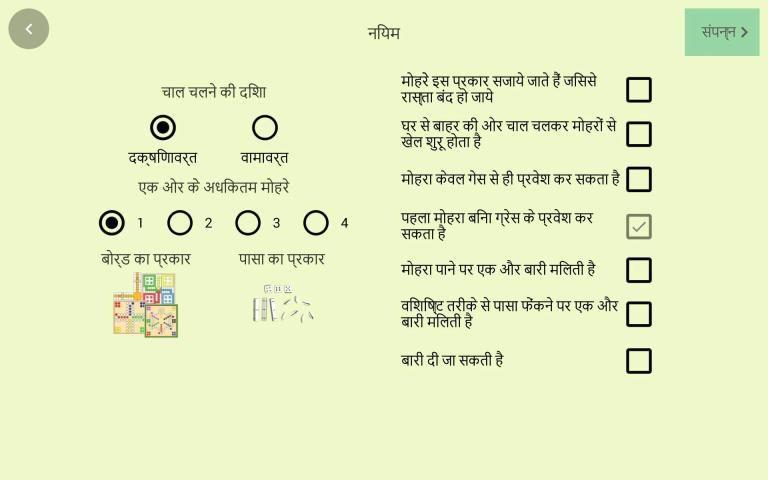 नियम
संपन्न
चाल चलने की दिशा
दक्षिणावर्त
वामावर्त
एक ओर के अधिकतम मोहरे
1 2 3 4
बोर्ड का प्रकार
पासा का प्रकार
मोहरे इस प्रकार सजाये जाते हैं जिससे
रास्ता बंद हो जाये
घर से बाहर की ओर चाल चलकर मोहरों से
खेल शुरू होता है
मोहरा केवल गेस से ही प्रवेश कर सकता है
पहला मोहरा बिना ग्रेस के प्रवेश कर
सकता है
मोहरा पाने पर एक और बारी मिलती है
विशिष्टि तरीके से पासा फेंकने पर एक और
बारी मिलती है
बारी दी जा सकती है